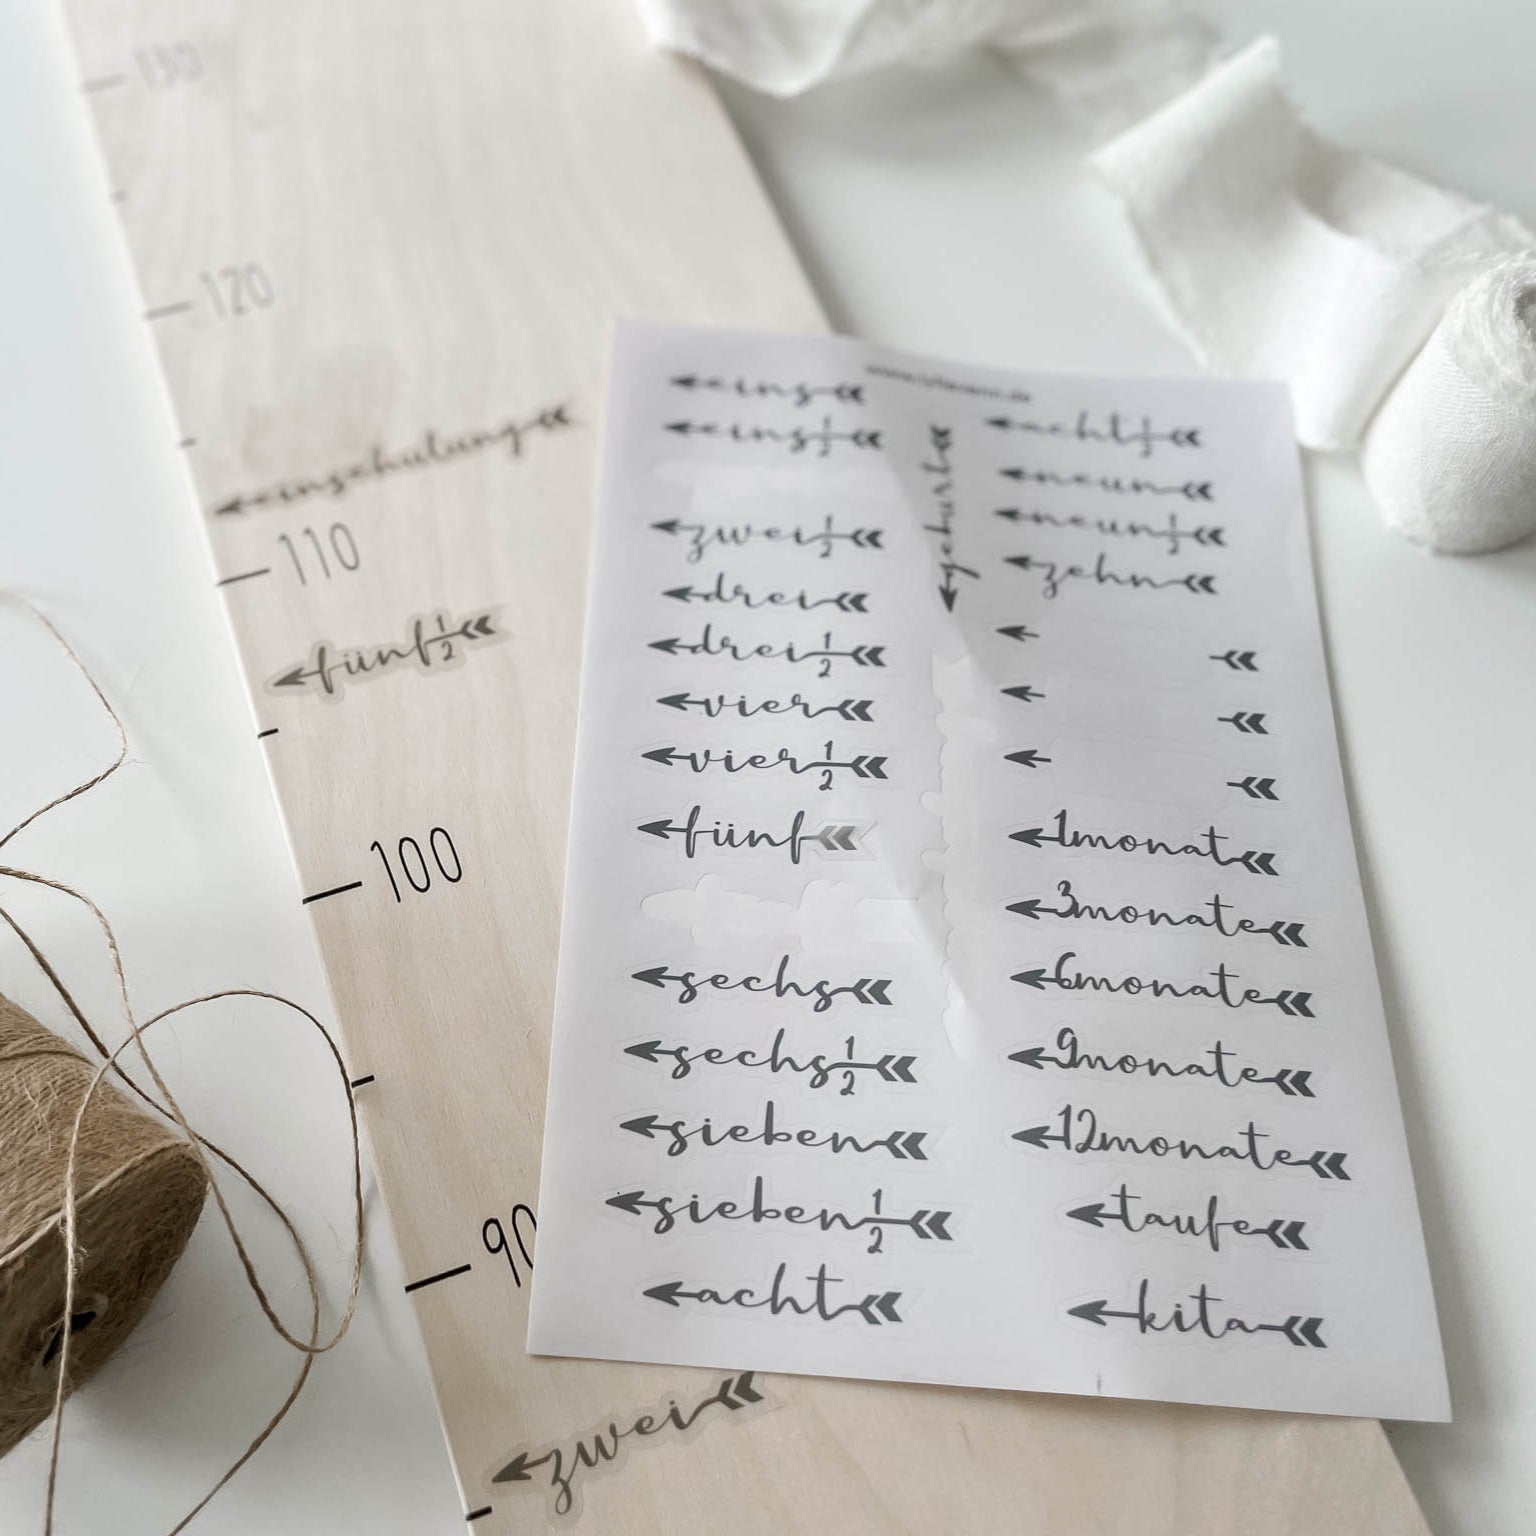 130
120
einschulung
110
fünf 1/2
100
90
zwei
eins
eins 1/2
zwei 1/2
drei
drei 1/2
vier
vier 1/2
fünf
sechs
sechs 1/2
sieben
sieben 1/2
acht
geburt
acht 1/2
neun
neun 1/2
zehn
1monat
3monate
6monate
9monate
12monate
taufe
kita